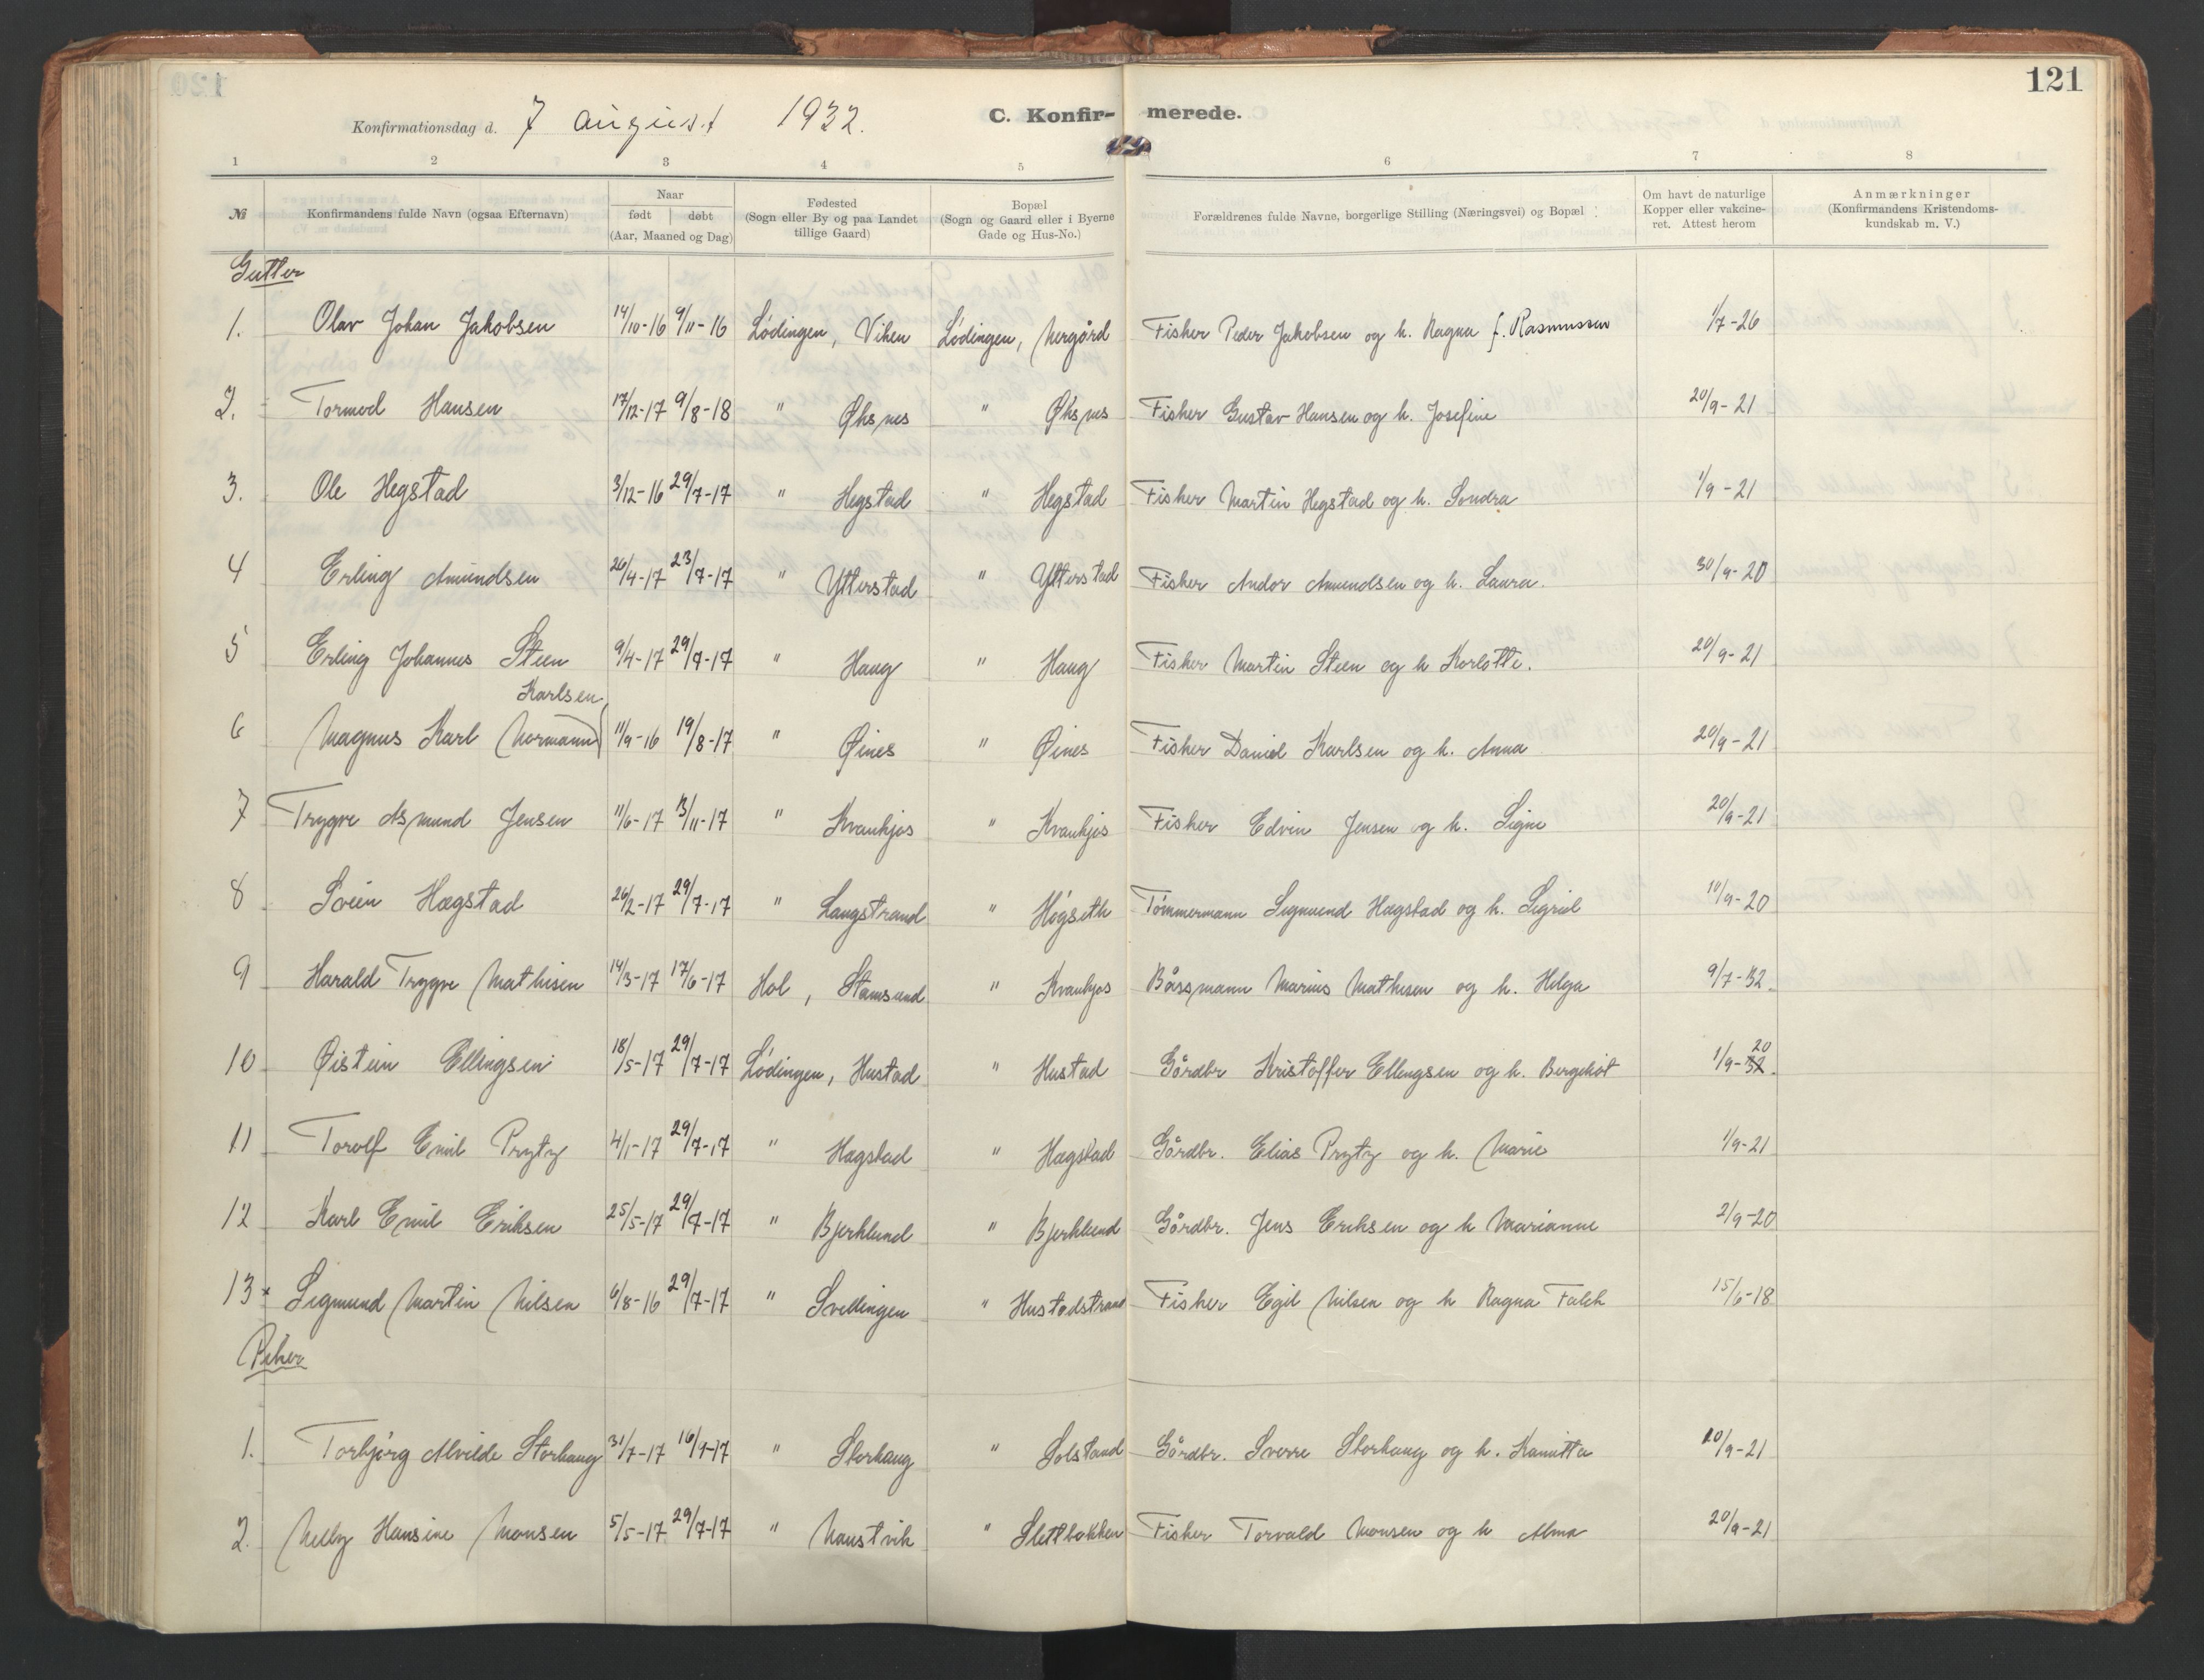 121
Konfirmationsdag d. 7 august 1932. C. Konfir- merede.
1 2 3 4 5 6 7 8
№ Konfirmandens fulde Navn (ogsaa Efternavn) Naar født døbt (Aar, Maaned og Dag) Fødested (Sogn eller By og paa Landet tillige Gaard) Bopæl (Sogn og Gaard eller i Byerne Gade og Hus-No.) Forældrenes fulde Navne, borgerlige Stilling (Næringsvei) og Bopæl Om havt de naturlige Kopper eller vakcineret. Attest herom Anmærkninger (Konfirmandens Kristendomskundskab m. V.)
Gutter
1. Olav Johan Jakobsen 14/10-16 9/11-16 Lødingen, Viken Lødingen, Nergård Fisker Peder Jakobsen og h. Ragna f. Rasmussen 1/7-26
2. Tormod Hansen 17/12-17 9/8-18 " Øksnes " Øksnes Fisker Gustav Hansen og h. Josefine 20/9-21
3. Ole Hegstad 3/12-16 29/7-17 " Hegstad " Hegstad Fisker Martin Hegstad og h. Sondra 1/9-21
4 Erling Amundsen 26/4-17 23/7-17 " Ytterstad " Ytterstad Fisker Andor Amundsen og h. Laura. 30/9-20
5 Erling Johannes Steen 9/4-17 29/7-17 " Haug " Haug Fisker Martin Steen og h Korlotte. 20/9-21
Karlsen
6 Magnus Karl Normann 11/9-16 19/8-17 " Øines " Øines Fisker Daniel Karlsen og h. Anna 20/9-21
7 Trygve Asmund Jensen 11/6-17 13/11-17 " Kvankjos " Kvankjos Fisker Edvin Jensen og h. Signe 20/9-21
8 Svein Hægstad 26/2-17 29/7-17 " Langstrand " Høgseth Tømmermann Sigmund Hægstad og h. Sigrid 10/9-20
9 Harald Trygve Mathisen 14/3-17 17/6-17 Hol, Stamsund " Kvankjos Båssmann Marius Mathisen og h. Helga 9/7-32.
10 Øistein Ellingsen 18/5-17 29/7-17 Lødingen, Hustad " Hustad Gårdbr Kristoffer Ellingsen og h. Bergliot 1/9-32. 20
11 Torolf Emil Prytz 4/1-17 29/7-17 " Hægstad " Hægstad Gårdbr. Elias Prytz og h. Marie 1/9-21
12 Karl Emil Eriksen 25/5-17 29/7-17 " Bjerklund " Bjerklund Gårdbr. Jens Eriksen og h Marianne 2/9-20
13 Sigmund Martin Nilsen 6/8-16 29/7-17 " Svellingen " Hustadstrand Fisker Egil Nilsen og h Ragna Falch 15/6-18
Piker
1. Torbjørg Alvilde Storhaug 31/7-17 16/9-17 " Storhaug " Solstand Gårdbr. Sverre Storhaug og h. Kamitta 20/9-21
2. Nelly Hansine Monsen 5/5-17 29/7-17 " Naustvik " Slettbakken Fisker Torvald Monsen og h Alma 20/9-21